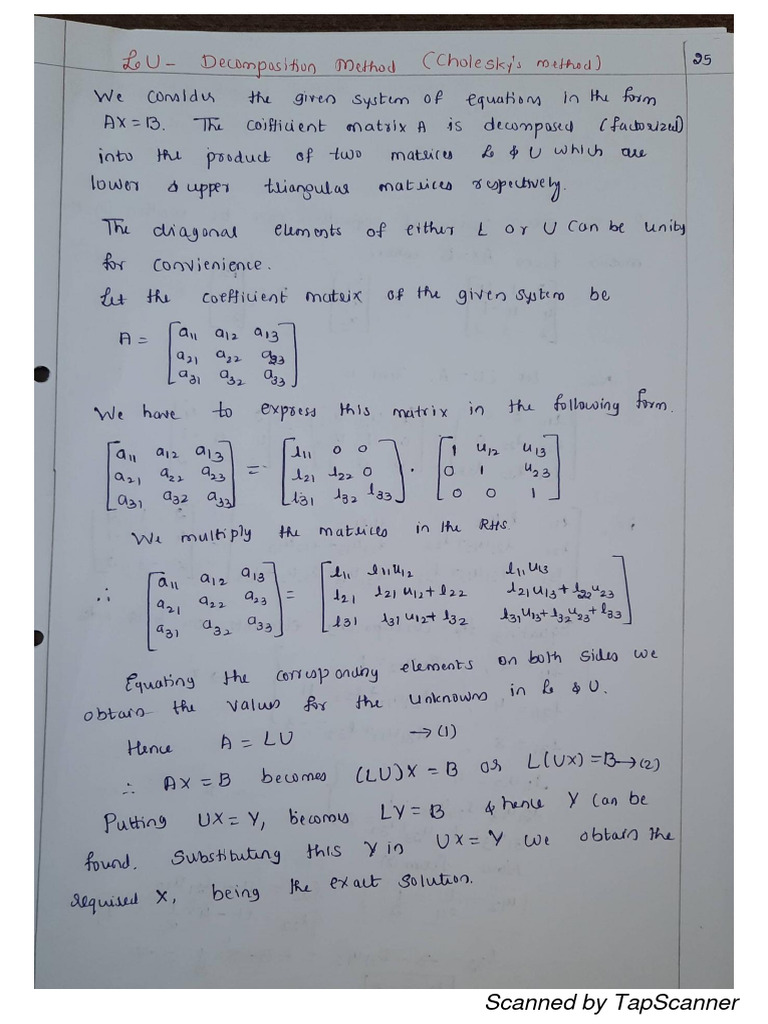 LU - Decomposition Method (Cholesky's method) 25
We consider the given system of equations in the form
AX = B. The coifficient matrix A is decomposed (factorized)
into the product of two matrices L & U which are
lower & upper triangular matrices respectively.
The diagonal elements of either L or U can be unity
for convienience.
Let the coefficient matrix of the given system be
A = [a11 a12 a13
a21 a22 a23
a31 a32 a33]
We have to express this matrix in the following form.
[a11 a12 a13 [l11 0 0 [1 u12 u13
a21 a22 a23 = l21 l22 0 . 0 1 u23
a31 a32 a33] l31 l32 l33] 0 0 1]
We multiply the matrices in the RHS.
∴ [a11 a12 a13 [l11 l11u12 l11u13
a21 a22 a23 = l21 l21u12+l22 l21u13+l22u23
a31 a32 a33] l31 l31u12+l32 l31u13+l32u23+l33]
Equating the corresponding elements on both sides we
obtain the values for the unknowns in L & U.
Hence A = LU → (1)
∴ AX = B becomes (LU)X = B or L(UX) = B → (2)
Putting UX = Y, becomes LY = B & hence Y can be
found. Substituting this Y in UX = Y we obtain the
required X, being the exact solution.
Scanned by TapScanner